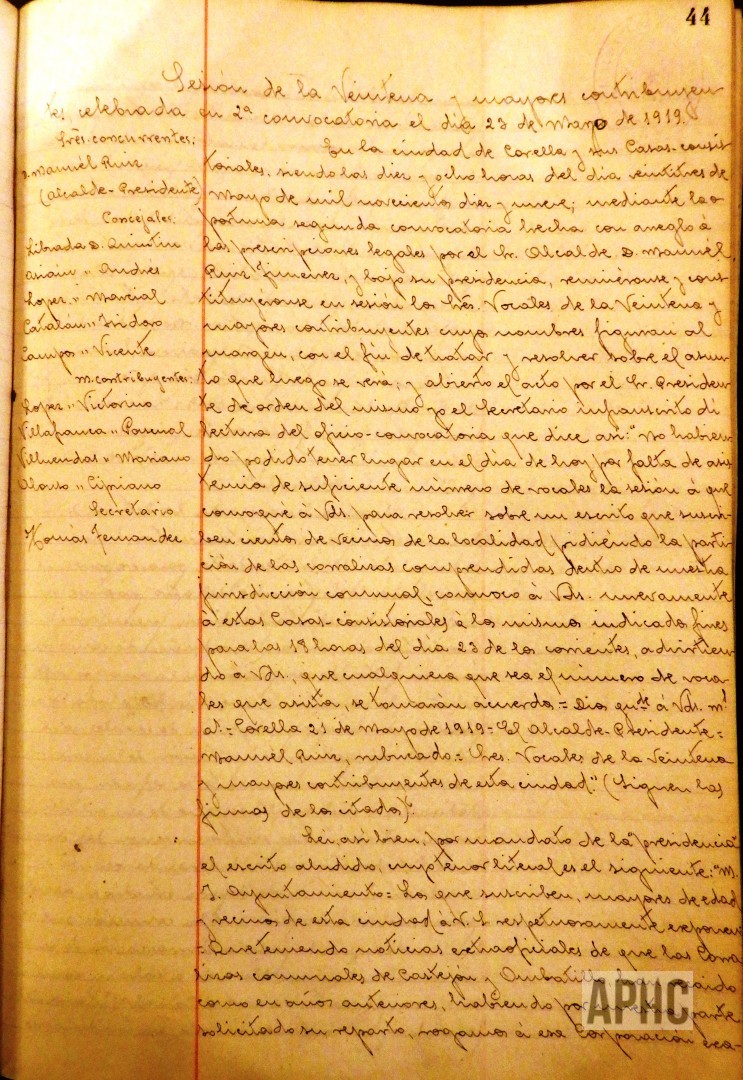 44
Sesión de la Veintena y mayores contribuyen
tes celebrada en 2ª convocatoria el día 23 de Mayo de 1919.
Srēs. concurrentes:
D. Manuél Ruiz
(Alcalde-Presidente)
Concejales:
Librada D. Quintín
Asiain " Andres
Lopez " Marcial
Catalán " Isidoro
Campos " Vicente
M. contribuyentes:
Lopez " Victorino
Villafranca " Pascual
Villuendas " Mariano
Alonso " Cipriano
Secretario
Tomás Fernandez
En la ciudad de Corella y sus Casas-consis
toriales, siendo las diez y ocho horas del día veintitres de
Mayo de mil novecientos diez y nueve; mediante la o
portuna segunda convocatoria hecha con arreglo á
las prescripciones legales por el Sr. Alcalde D. Manuél
Ruiz Jimenez, y bajo su presidencia, reuniéronse y cons
tituyéronse en sesión los Srēs. Vocales de la Veintena y
mayores contribuyentes cuyos nombres figuran al
margen, con el fin de tratar y resolver sobre el asun
to que luego se verá; y abierto el acto por el Sr. Presiden
te de orden del mismo yo el Secretario infrascrito di
lectura del oficio-convocatoria que dice así: "No habien
do podido tener lugar en el día de hoy por falta de asis
tencia de suficiente número de vocales la sesión á que
convoqué á Vds. para resolver sobre un escrito que suscri
ben cientos de vecinos de la localidad pidiendo la parti
ción de las corralizas comprendidas dentro de nuestra
jurisdicción comunal, convoco á Vds. nuevamente
á estas Casas-consistoriales á los mismos indicados fines
para las 18 horas del día 23 de los corrientes, advirtien
do á Vds., que cualquiera que sea el número de voca
les que asista, se tomarán acuerdos = Dios gue. á Vds. m.
a. = Corella 21 de Mayo de 1919 = El Alcalde-Presidente =
Manuél Ruiz, rubricado = Sres. Vocales de la Veintena
y mayores contribuyentes de esta ciudad." (Siguen las
firmas de los citados).
Leí así bien, por mandato de la "presidencia"
el escrito aludido, cuyo tenor literal es el siguiente: "M.
I. Ayuntamiento = Los que suscriben, mayores de edad
y vecinos de esta ciudad á V. S. respetuosamente exponen:
= Que teniendo noticias extraoficiales de que las Corra
lizas comunales de Castejón y Ombatillo han
como en años anteriores, habiendo por parte
solicitado su reparto, rogamos á esa Corporación exa-
APHC